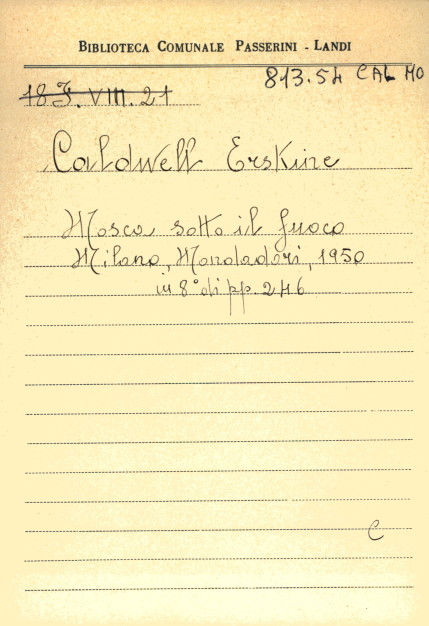 BIBLIOTECA COMUNALE PASSERINI - LANDI
813.54 CAL MO
18 F. VIII. 21
Caldwell Erskine
Mosca sotto il fuoco
Milano, Mondadori, 1950
in 8° di pp. 246
C